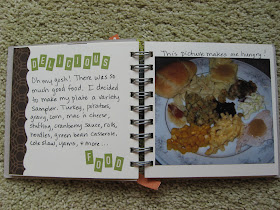 DELICIOUS
Oh my gosh! There was so
much good food. I decided
to make my plate a variety
sampler. Turkey, potatoes,
gravy, corn, mac n cheese,
stuffing, cranberry sauce, rolls,
noodles, green bean casserole,
cole slaw, yams, + more...
FOOD
This picture makes me hungry!